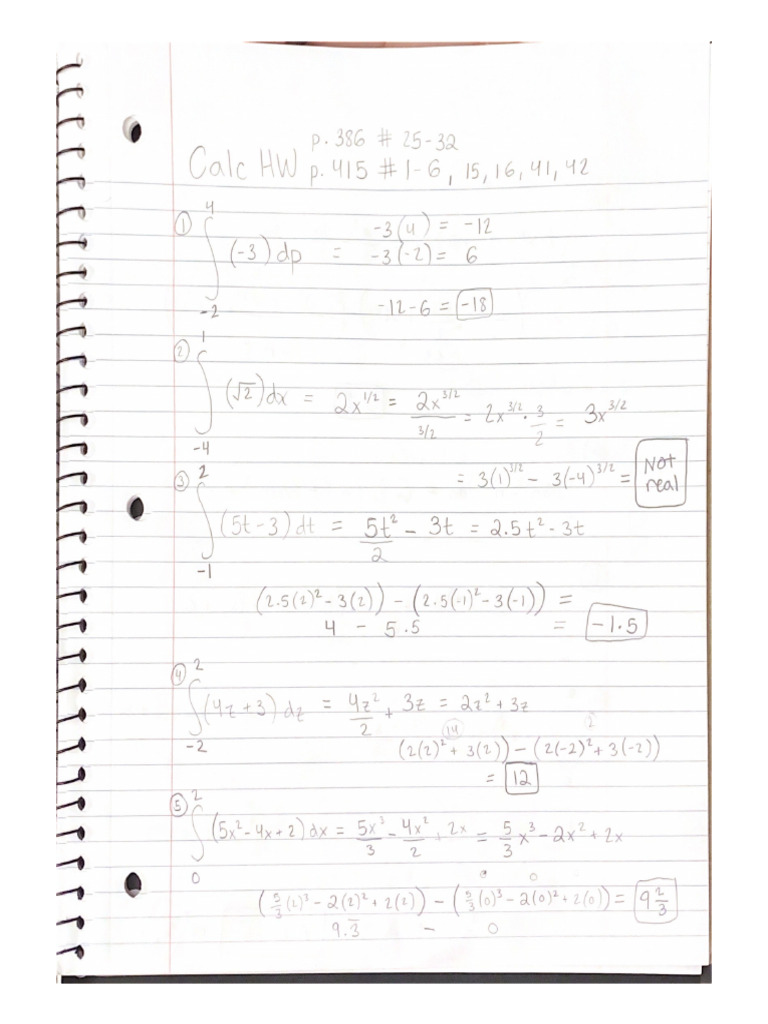 p. 386 # 25-32
Calc HW p. 415 # 1-6, 15, 16, 41, 42
① ∫_{-2}^{4} (-3) dp = -3(4) = -12
-3(-2) = 6
-12-6 = -18
② ∫_{-4}^{1} (√2) dx = 2x^{1/2} = 2x^{3/2} / 3/2 = 2x^{3/2} · 3/2 = 3x^{3/2}
= 3(1)^{3/2} - 3(-4)^{3/2} = Not real
③ ∫_{-1}^{2} (5t-3) dt = 5t²/2 - 3t = 2.5t² - 3t
(2.5(2)² - 3(2)) - (2.5(-1)² - 3(-1)) =
4 - 5.5 = -1.5
④ ∫_{-2}^{2} (4z+3) dz = 4z²/2 + 3z = 2z² + 3z
14 2
(2(2)² + 3(2)) - (2(-2)² + 3(-2))
= 12
⑤ ∫_{0}^{2} (5x² - 4x + 2) dx = 5x³/3 - 4x²/2 + 2x = 5/3 x³ - 2x² + 2x
0 0
(5/3(2)³ - 2(2)² + 2(2)) - (5/3(0)³ - 2(0)² + 2(0)) = 9 2/3
9.3̅ - 0